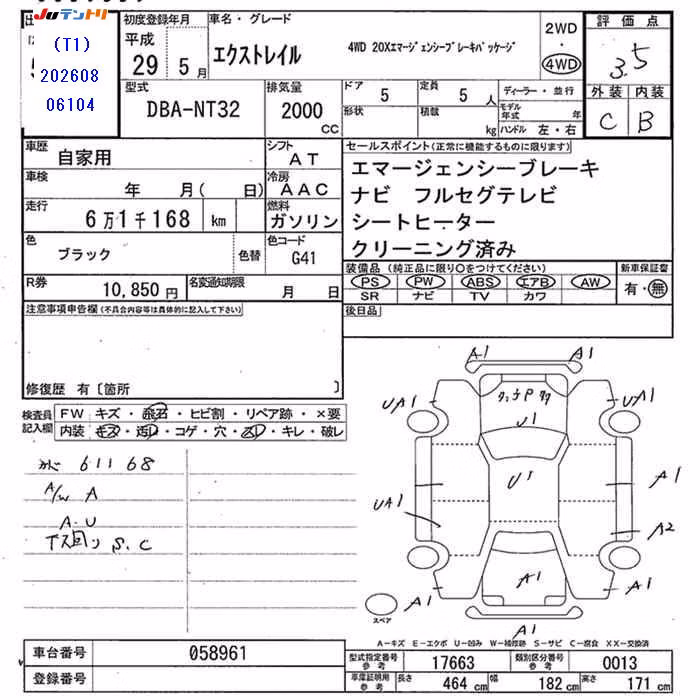 JUテントリ
(T1)
202608
06104
初度登録年月
平成
29 5月
車名・グレード
エクストレイル
4WD 20Xエマージェンシーブレーキパッケージ
2WD
・
4WD
評価点
3.5
外装 内装
C B
型式
DBA-NT32
排気量
2000
CC
ドア
5
定員
5人
形状
積載
kg
ディーラー・並行
モデル年式 年
ハンドル 左・右
車歴
自家用
シフト
AT
車検
年 月( 日)
冷房
AAC
走行
6万1千168 km
燃料
ガソリン
色
ブラック
色替
色コード
G41
R券
10,850円
名変通知期限
月 日
セールスポイント(正常に機能するものに限ります)
エマージェンシーブレーキ
ナビ フルセグテレビ
シートヒーター
クリーニング済み
装備品(純正品に限り○をつけてください)
PS PW ABS エアB AW
SR ナビ TV カワ
新車保証書
有・無
後日品
注意事項申告欄(不具合内容等は具体的に記入して下さい)
修復歴 有〔箇所 〕
検査員
記入欄
FW キズ・飛石・ヒビ割・リペア跡・×要
内装 キズ・汚レ・コゲ・穴・スレ・キレ・破レ
61168
A/W A
A.U
下ス回り S.C
A1
A1
タッチPタタ
U1
UA1
UA1
U1
UA1
A1
A2
A1
A1
A1
A1
スペア
A-キズ E-エクボ U-凹み W-補修跡 S-サビ C-腐食 XX-交換済
車台番号
058961
登録番号
型式指定番号
参考
17663
類別区分番号
参考
0013
車庫証明用
参考
長さ
464cm
幅
182cm
高さ
171cm